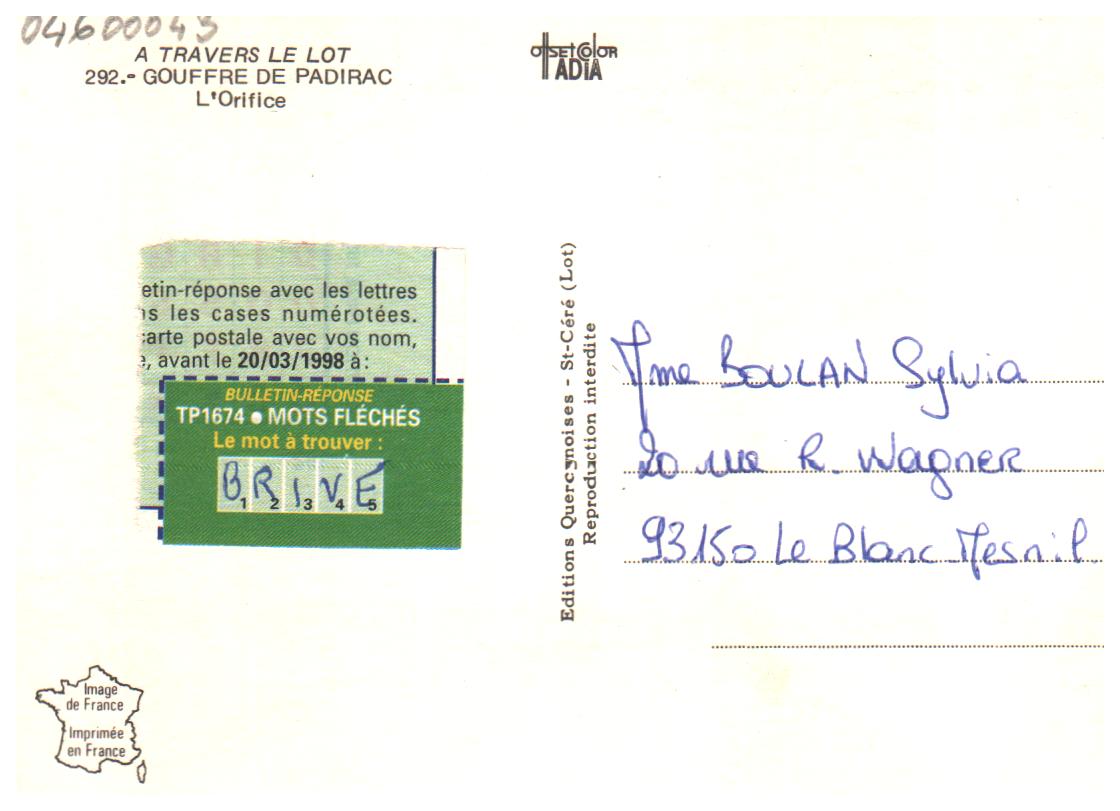 04600043
A TRAVERS LE LOT
292.- GOUFFRE DE PADIRAC
L'Orifice
OFFSET COLOR
ADIA
etin-réponse avec les lettres
ns les cases numérotées.
carte postale avec vos nom,
e, avant le 20/03/1998 à :
BULLETIN-RÉPONSE
TP1674 ● MOTS FLÉCHÉS
Le mot à trouver :
B R I V E
1 2 3 4 5
Editions Quercynoises - St-Céré (Lot)
Reproduction interdite
Mme BOULAN Sylvia
20 rue R. Wagner
93150 Le Blanc Mesnil
Image
de France
Imprimée
en France